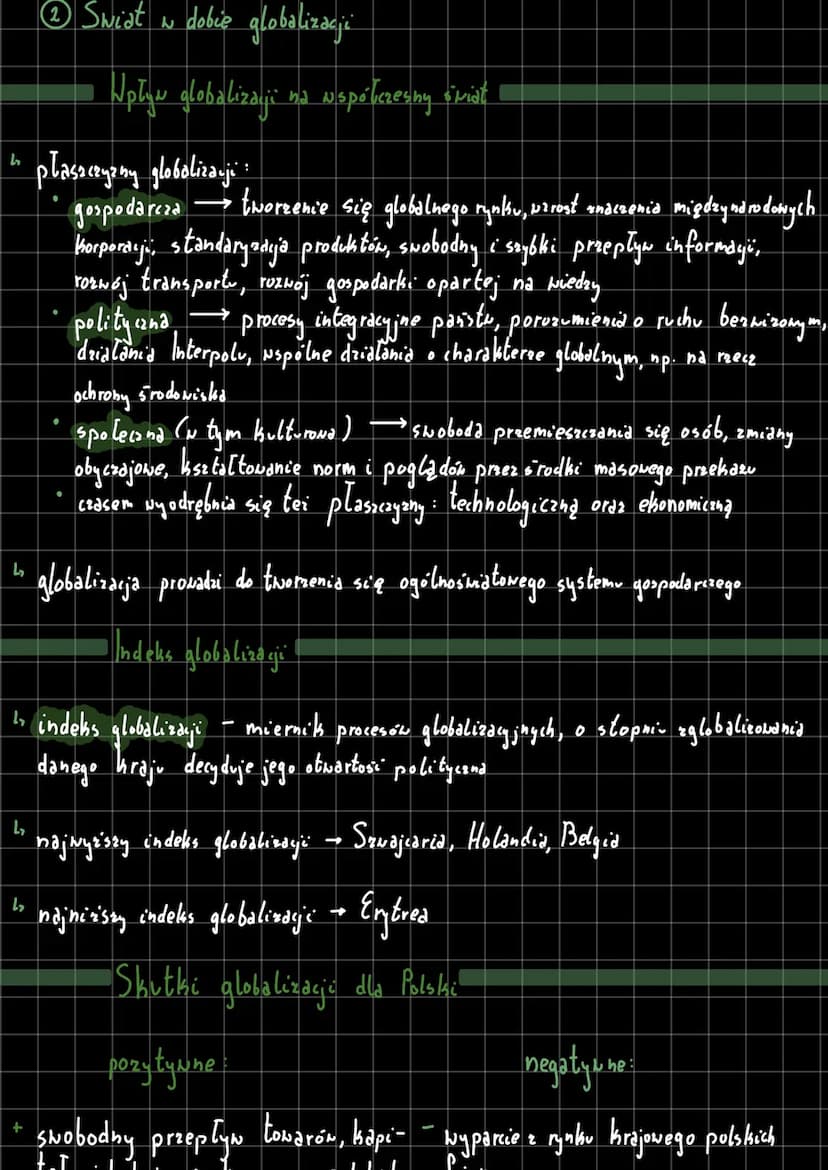 ② Świat w dobie globalizacji
Wpływ globalizacji na współczesny świat
↳ płaszczyzny globalizacji:
• gospodarcza → tworzenie się globalnego rynku, wzrost znaczenia międzynarodowych
korporacji, standaryzacja produktów, swobodny i szybki przepływ informacji,
rozwój transportu, rozwój gospodarki opartej na wiedzy
• polityczna → procesy integracyjne państw, porozumienia o ruchu bezwizowym,
działania Interpolu, wspólne działania o charakterze globalnym, np. na rzecz
ochrony środowiska
• społeczna (w tym kulturowa) → swoboda przemieszczania się osób, zmiany
obyczajowe, kształtowanie norm i poglądów przez środki masowego przekazu
• czasem wyodrębnia się też płaszczyzny: technologiczną oraz ekonomiczną
↳ globalizacja prowadzi do tworzenia się ogólnoświatowego systemu gospodarczego
Indeks globalizacji
↳ indeks globalizacji – miernik procesów globalizacyjnych, o stopniu zglobalizowania
danego kraju decyduje jego otwartość polityczna
↳ najwyższy indeks globalizacji → Szwajcaria, Holandia, Belgia
↳ najniższy indeks globalizacji → Erytrea
Skutki globalizacji dla Polski
pozytywne: negatywne:
+ swobodny przepływ towarów, kapi- – wyparcie z rynku krajowego polskich